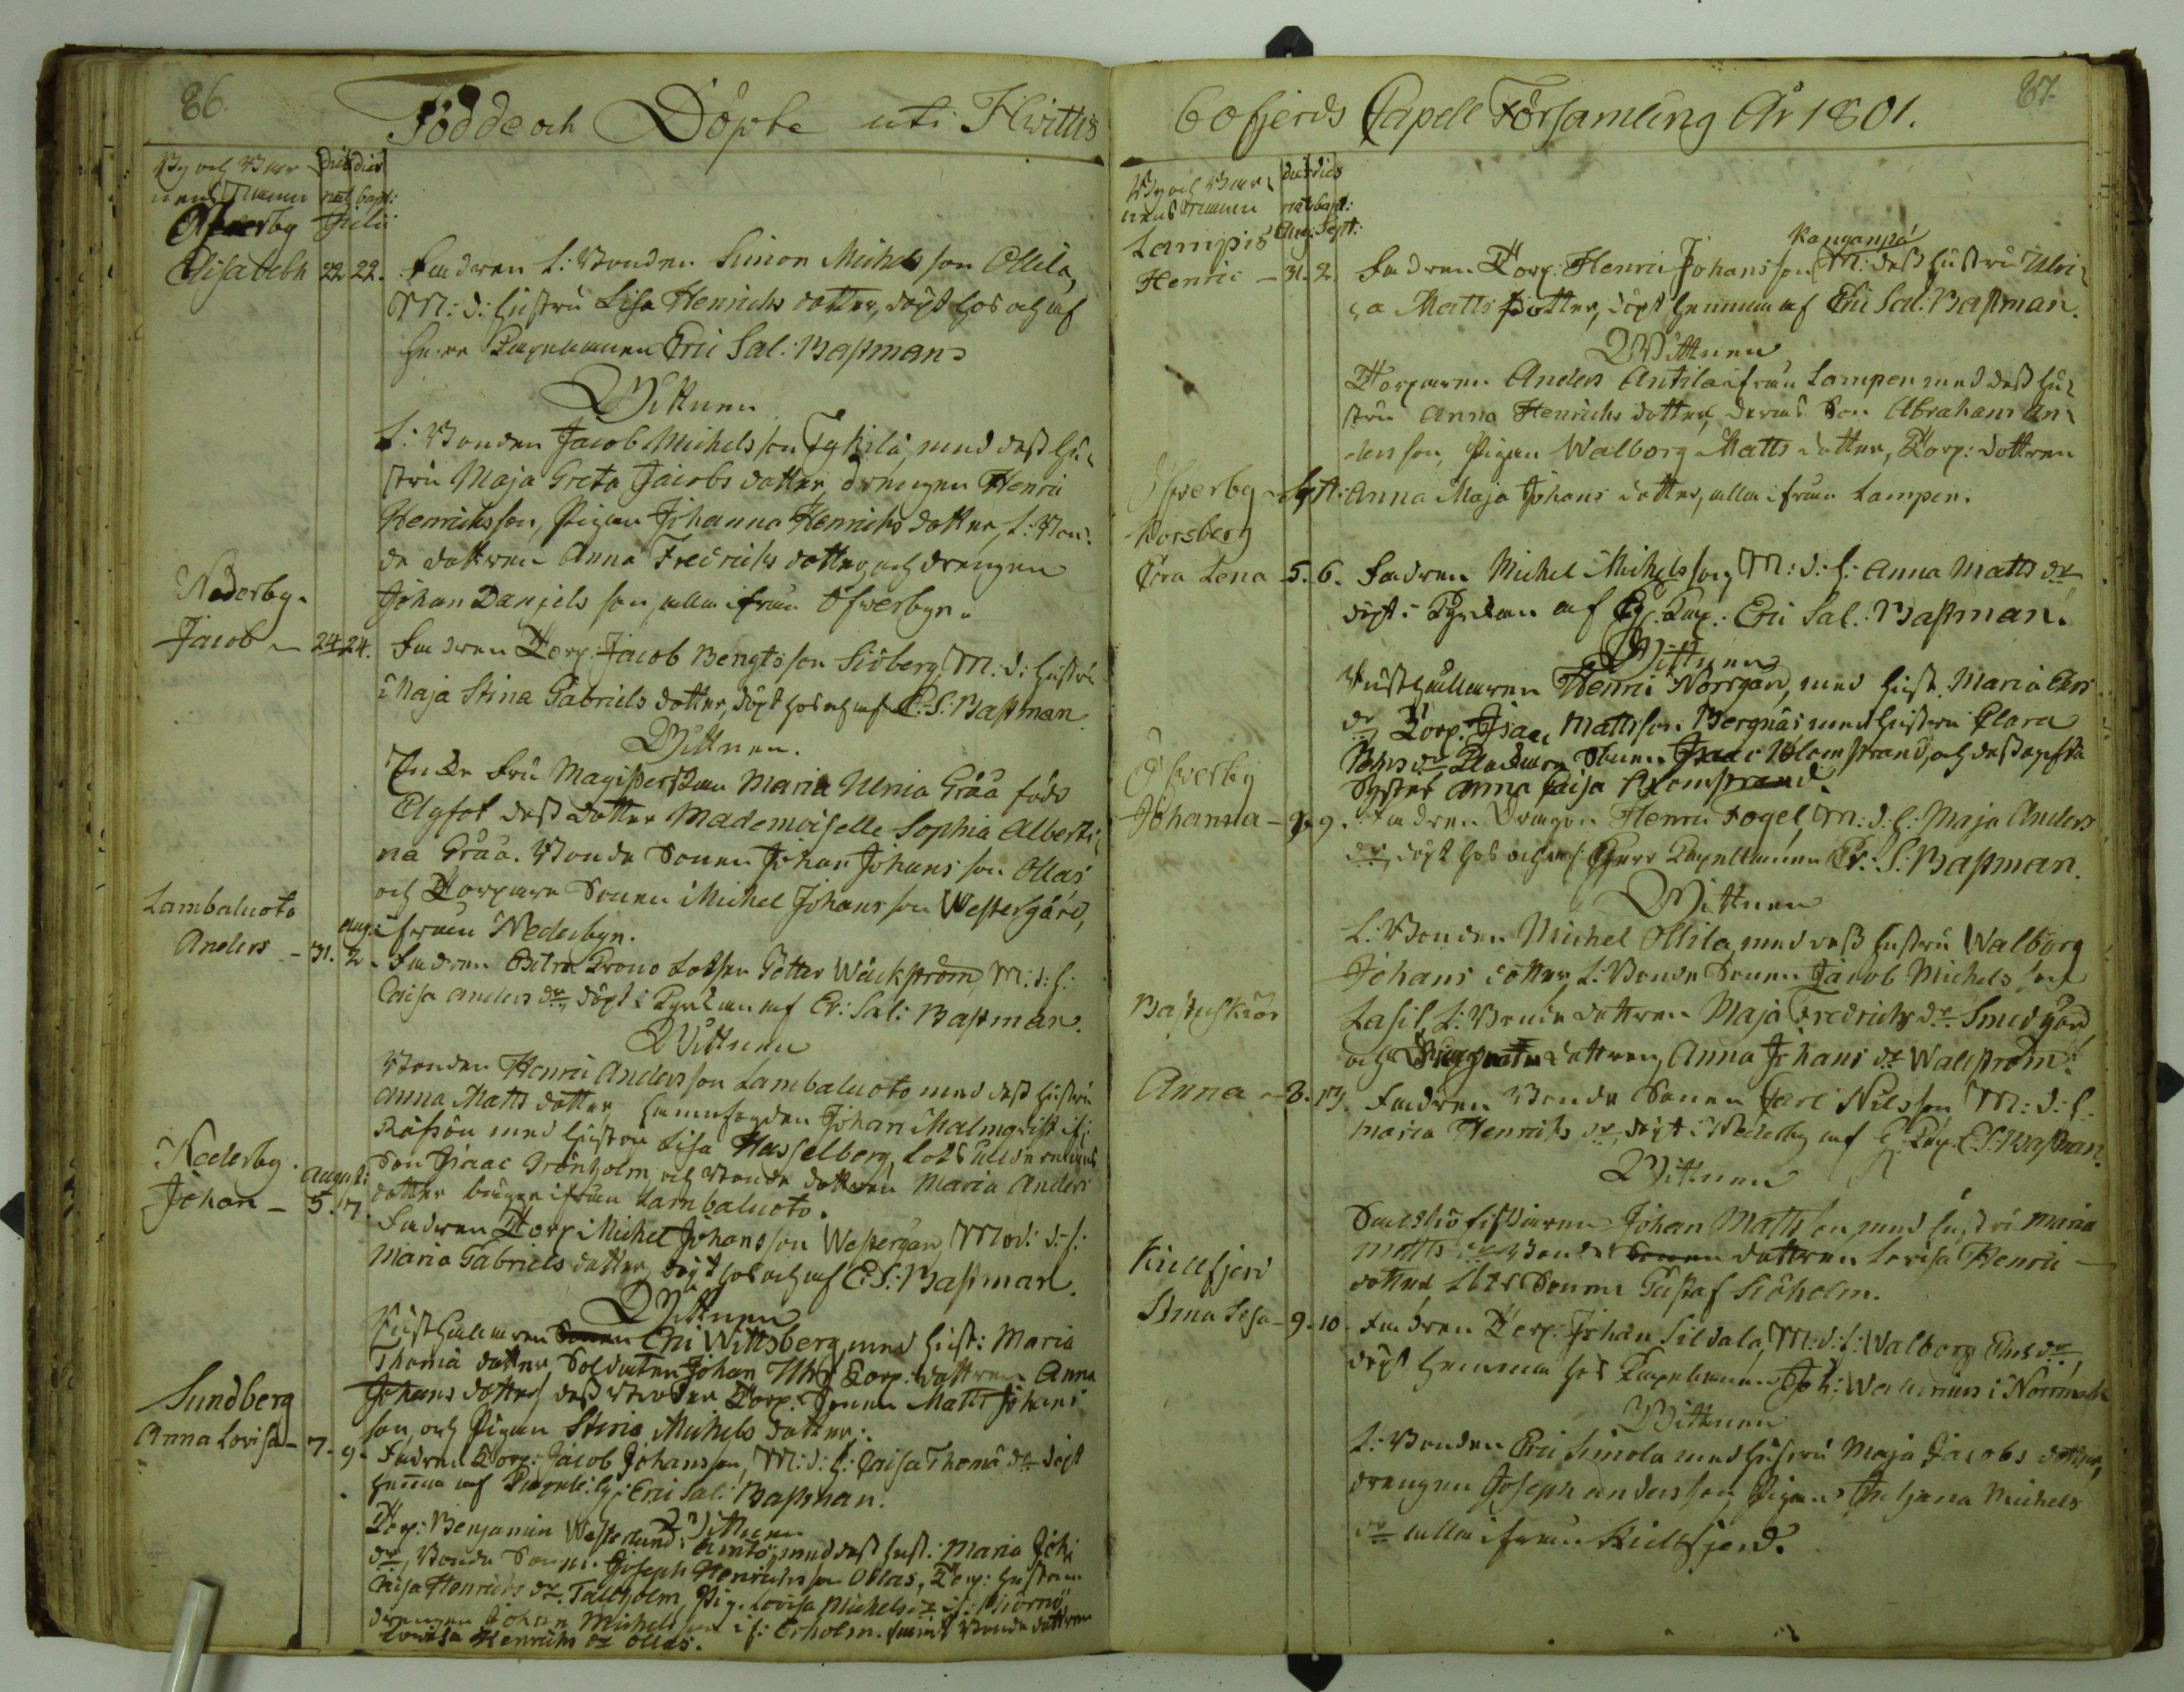 86.
Födde och Döpte uti Hwittis
By och Bar-
nens Namn
dies nat
dies bapt:
Öfwerby Julii
Elisabeth 22 22. Fadren L: Bonden Simon Michelsson Ollila,
M: d: hustru Lisa Henrichs dotter, döpt hos och af
herr Capellanen Eric Sal: Bassman
Wittnen
L: Bonden Jacob Michelsson Tykilä, med dess hu-
stru Maja Greta Jacobs dotter, drengen Henric
Henrichsson, Pigan Johanna Henrichs dotter, L: Bon-
de dottren Anna Fredrichs dotter, och drengen
Johan Danjels son, alla ifrån Öfwerbyn.
Nederby.
Jacob - 24 24. Fadren Torp: Jacob Bengtsson Siöberg, M: d: hustru
Maja Stina Gabriels dotter, döpt hos och af E: S: Bassman
Wittnen.
Enke Fru Magisterskan Maria Ulrica Gråå född
Elgfot dess dotter Mademoiselle Sophia Alberti-
na Gråå. Bonde Sonen Johan Johansson Ollas
och Torpare Sonen Michel Johansson Westergård,
ifrån Nederbyn.
Lambaluoto
Aug:
Anders - 31. 2. Fadren Extra Krono Lotsen Petter Wäckström, M: d: h:
Caisa Anders dr, döpt i Kyrckan af Er: Sal: Bassman.
Wittnen
Bonden Henric Andersson Lambaluoto med dess hustru
Anna Matts dotter, Johan Malmqvist
Räfsön med hustru Lisa Hasselberg, Lots
Son Isaac Grönholm och Bonde dottren Maria Anders
dotter bägge ifrån Lambaluoto.
Nederby. August:
Johan - 5. 7. Fadren Torp: Michel Johansson Westergård, Mod: d: h:
Maria Gabriels dotter, döpt hos och af E: S: Bassman.
Wittnen
Eric Wittsberg, med hust: Maria
Thomä dotter, Soldaten Johan Torp: dottren Anna
Johans dotter, dess Broder Torp: Sonen Matts Johans
son, och Pigan Stina Michels dotter.
Sundberg
Anna Lovisa - 7. 9. Fadren Torp: Jacob Johansson, M: d: h: Caisa Thomä dr döpt
hemma af Capell: h: Eric Sal: Bassman.
Wittnen
Torp: Benjamin Westerlund i Ämtö, med dess hust: Maria Joh:
dr, Bonde Sonen Joseph Henrichsson Ollas, Torp: hustrun
Caisa Henrichs dr Tallholm, Pig. Lovisa Michels dr
drengen Johan Michelsson i Erholm. samt Bonde dottren
Lovisa Henrichs dr Ollas.
87.
bofjerds Capell Församling År 1801.
By och Bar-
nens Namn
dies nat
dies bapt:
Aug: Sept:
Lampis Kanganpä
Henric - 31. 2. Fadren Torp: Henric Johansson M: dess hustru Ulri-
ca Matts Dotter, döpt hemma af Eric Sal: Bassman.
Wittnen
Torparen Anders Antila ifrån Lampen med dess hu-
stru Anna Henrichs dotter, deras Son Abraham An-
dersson, Pigan Walborg Matts dotter, Torp: dottren
Öfwerby - Sept: Anna Maja Johans dotter, alla ifrån Lampen.
Korsberg
Cara Lena - 5. 6. Fadren Michel Michelsson, M: d: h: Anna Matts dr
döpt i Kyrckan af Hr: Cap: Eric Sal: Bassman.
Wittnen
Henric Norrgård, med hust: Maria Ers
dr, Torp: Isaac Mattsson Bergnäs med hustru Clara
Sonen Isaac
Syster Anna Caisa
Öfwerby
Johanna - 9. Fadren Dragon Henric Fogel, M: d: h: Maja Anders
dr, döpt hos och af Herr Capellanen Er: S: Bassman.
Wittnen
L: Bonden Michel Ollila, med dess hustru Walborg
Johans dotter, L: Bonde Sonen Jacob Michels son
Lasil, L: Bonde dottren Maja Fredrichs dr Smedgård
och dottren, Anna Johans dr Wallström.
Bastuskiär
Anna - 8. 13. Fadren Bonde Sonen Carl Nilsson M: d: h:
Maria Henrichs dr, döpt i Nederby af h: Cap: E: S: Bassman.
Wittnen
Johan Mattsson, med hustru Maria
Matts dr Bonde dottren Lovisa Henric
dotter, Lots Sonen Gustaf Siöholm.
Kiellfjerd
Anna Lisa - 9. 10. Fadren Torp: Johan Sildala, M: d: h: Walborg Ers dr,
döpt hemma hos Capellanen Joh: i Norrmark
Wittnen
L: Bonden Eric Simola med hustru Maja Jacobs dotter,
drengen Joseph Andersson, Pigan Michels
dr alla ifrån Kiellfjerd.